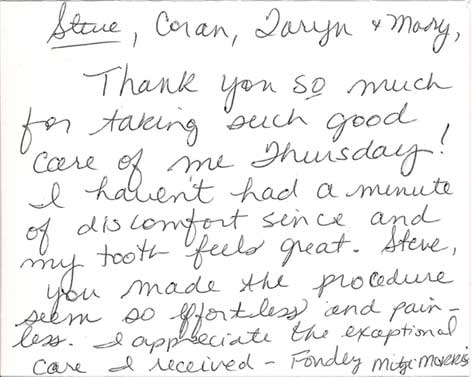 Steve, Coran, Taryn & Mary,
Thank you so much
for taking such good
care of me Thursday!
I haven't had a minute
of discomfort since and
my tooth feels great. Steve,
you made the procedure
seem so effortless and pain-
less. I appreciate the exceptional
care I received - Fondly Mitzi Morris